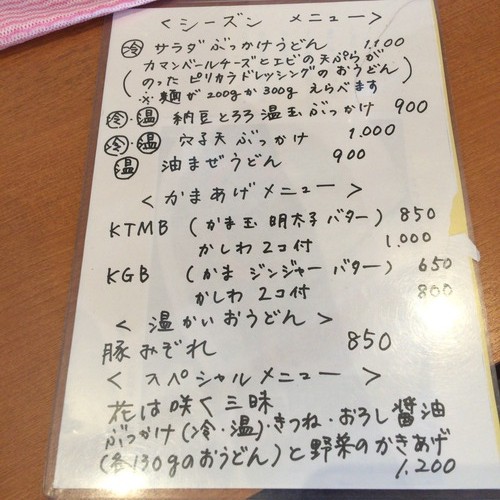 <シーズン メニュー>
冷 サラダぶっかけうどん 1,100
(カマンベールチーズとエビの天ぷらが
のったピリカラドレッシングのおうどん)
※麺が200gか300gえらべます
冷・温 納豆とろろ温玉ぶっかけ 900
冷・温 穴子天ぶっかけ 1.000
温 油まぜうどん 900
<かまあげメニュー>
KTMB (かま玉 明太子バター) 850
かしわ 2コ付 1,000
KGB (かま ジンジャー バター) 650
かしわ 2コ付 800
<温かいおうどん>
豚みぞれ 850
<スペシャルメニュー>
花は咲く三昧
ぶっかけ(冷・温)・きつね・おろし醤油
(各130gのおうどん)と野菜のかきあげ
1,200